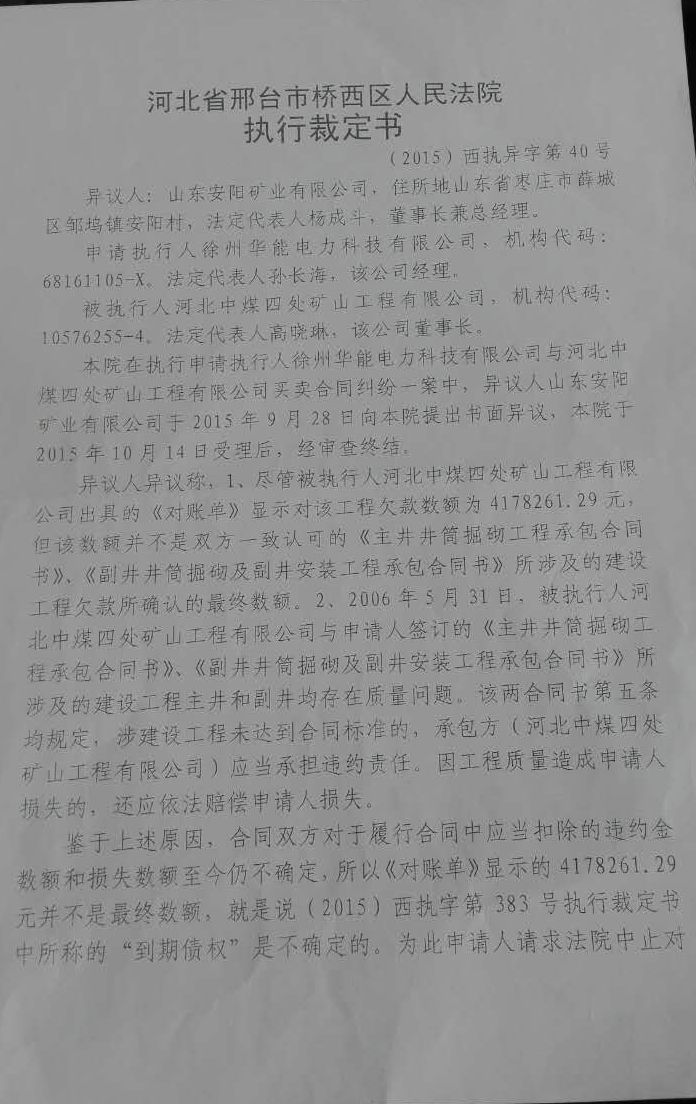 河北省邢台市桥西区人民法院
执行裁定书
（2015）西执异字第 40 号
异议人：山东安阳矿业有限公司，住所地山东省枣庄市薛城
区邹坞镇安阳村，法定代表人杨成斗，董事长兼总经理。
申请执行人徐州华能电力科技有限公司，机构代码：
68161105-X。法定代表人孙长海，该公司经理。
被执行人河北中煤四处矿山工程有限公司，机构代码：
10576255-4。法定代表人高晓琳，该公司董事长。
本院在执行申请执行人徐州华能电力科技有限公司与河北中
煤四处矿山工程有限公司买卖合同纠纷一案中，异议人山东安阳
矿业有限公司于 2015 年 9 月 28 日向本院提出书面异议，本院于
2015 年 10 月 14 日受理后，经审查终结。
异议人异议称，1、尽管被执行人河北中煤四处矿山工程有限
公司出具的《对账单》显示对该工程欠款数额为 4178261.29 元，
但该数额并不是双方一致认可的《主井井筒掘砌工程承包合同
书》、《副井井筒掘砌及副井安装工程承包合同书》所涉及的建设
工程欠款所确认的最终数额。2、2006 年 5 月 31 日，被执行人河
北中煤四处矿山工程有限公司与申请人签订的《主井井筒掘砌工
程承包合同书》、《副井井筒掘砌及副井安装工程承包合同书》所
涉及的建设工程主井和副井均存在质量问题。该两合同书第五条
均规定，涉建设工程未达到合同标准的，承包方（河北中煤四处
矿山工程有限公司）应当承担违约责任。因工程质量造成申请人
损失的，还应依法赔偿申请人损失。
鉴于上述原因，合同双方对于履行合同中应当扣除的违约金
数额和损失数额至今仍不确定，所以《对账单》显示的 4178261.29
元并不是最终数额，就是说（2015）西执字第 383 号执行裁定书
中所称的“到期债权”是不确定的。为此申请人请求法院中止对